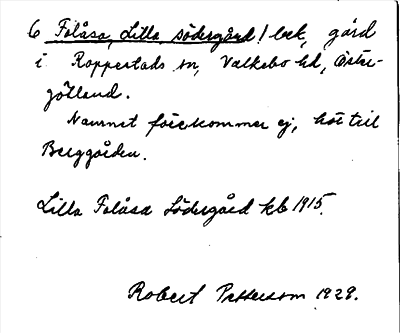 6 Folåsa, Lilla södergård! bek, gård
i Rappestads sn, Valkebo hd, Öster-
götland.
Namnet förekommer ej, hör till
Berggården.
Lilla Folåsa Södergård kb 1915.
Robert Pettersson 1929.